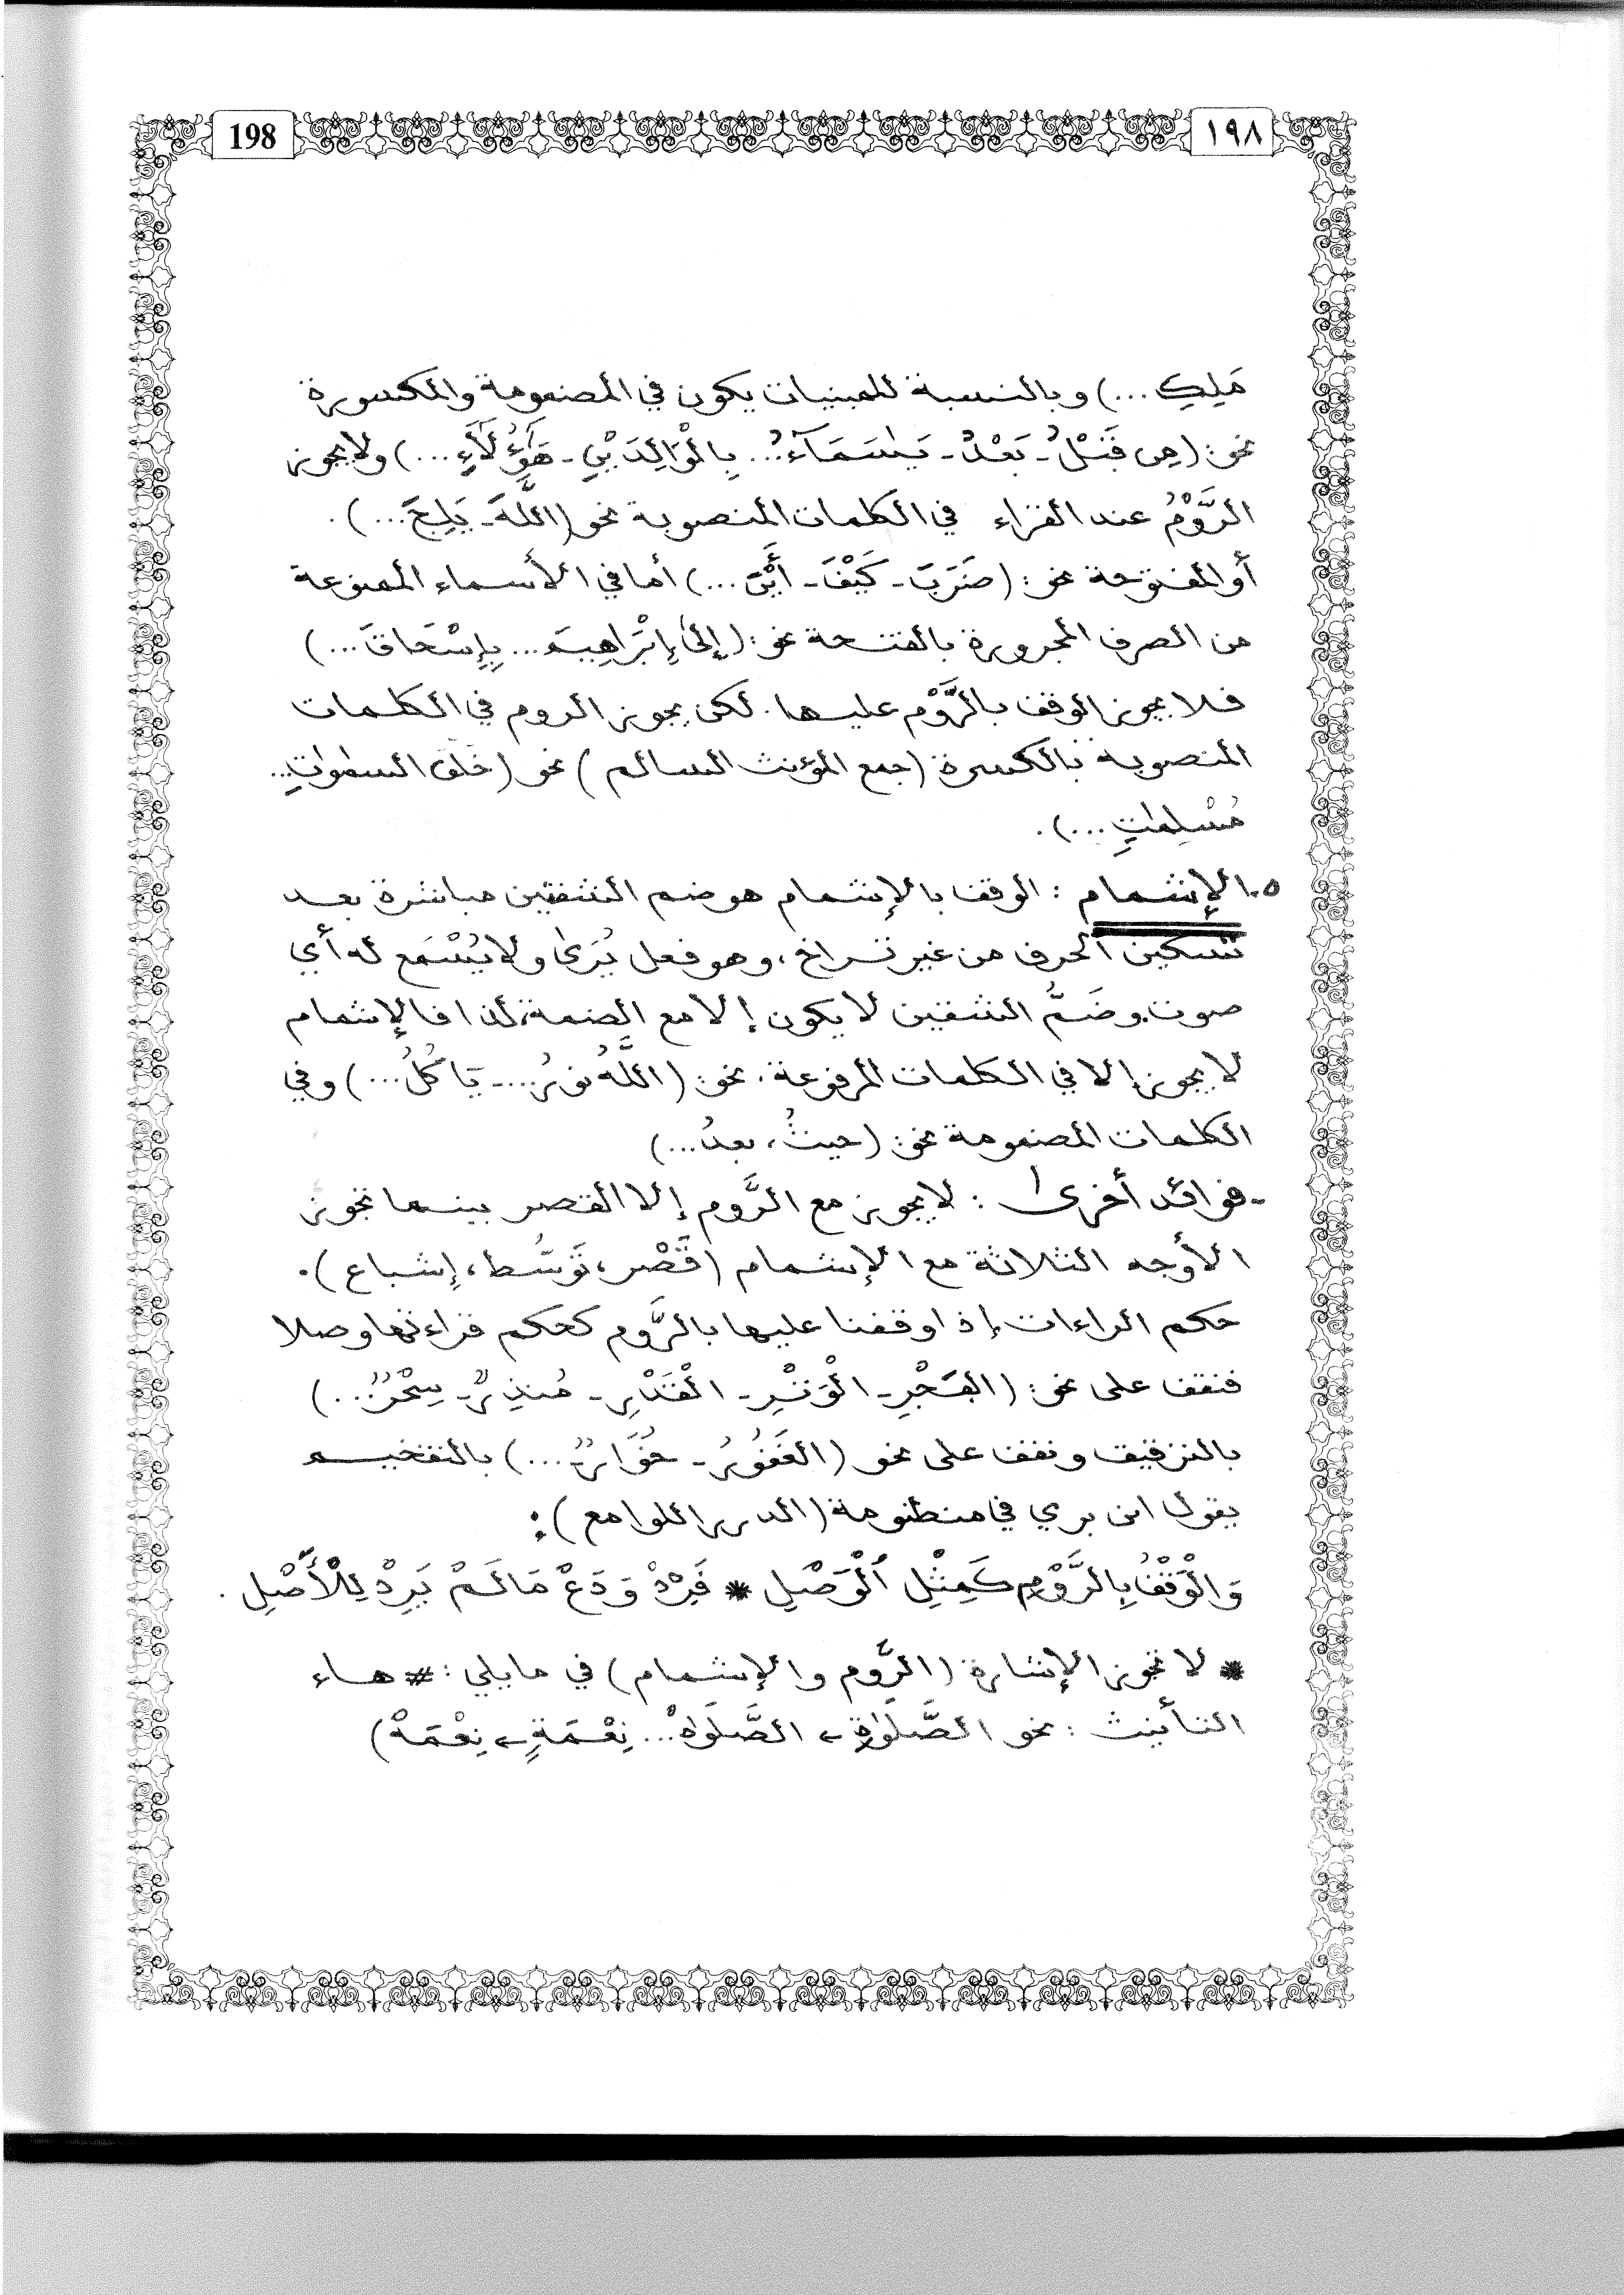 198
١٩٨
مَلِكِ ...) وبالنسبة للمبنيات يكون في المضمومة والمكسورة
نحو: (مِن قَبْلُ - بَعْدُ - يَٰسَمَآءُ... بِالْوَالِدَيْنِ - هَٰٓؤُلَآءِ ...) ولا يجوز
الرَّوْمُ عند القراء في الكلمات المنصوبة نحو (اللَّهَ - يَلِجَ ...).
أو المفتوحة نحو: (ضَرَبَ - كَيْفَ - أَيْنَ ...) أما في الأسماء الممنوعة
من الصرف المجرورة بالفتحة نحو: (إِلَىٰ إِبْرَاهِيمَ ... بِإِسْحَاقَ ...)
فلا يجوز الوقف بالرَّوْم عليها. لكن يجوز الروم في الكلمات
المنصوبة بالكسرة (جمع المؤنث السالم) نحو (خلق السمٰوٰتِ ..
مُسْلِمٰتٍ ...).
٥.١ الإشمام : الوقف بالإشمام هو ضم الشفتين مباشرة بعد
تسكين الحرف من غير تراخ، وهو فعل يُرَىٰ ولا يُسْمَع له أي
صوت. وضَمُّ الشفتين لا يكون إلا مع الضمة، لذا فالإشمام
لا يجوز إلا في الكلمات المرفوعة. نحو: (اللَّهُ نورُ ... - يَاكُلُ ...) وفي
الكلمات المضمومة نحو: (حيثُ، بعدُ ...)
- فوائد أخرىٰ : لا يجوز مع الرَّوم إلا القصر بينما تجوز
الأوجه الثلاثة مع الإشمام (قَصْر، تَوَسُّط، إشباع).
حكم الراءات إذا وقفنا عليها بالرَّوم كحكم قراءتها وصلا
فنقف على نحو: (الفَجْرِ - الْوَتْرِ - الْقَدْرِ - مُنذِرٌ - سِحْرٌ ...)
بالترقيق ونقف على نحو (الغَفُورُ - خُوَارٌ - ...) بالتفخيم
يقول ابن بري في منظومة (الدرر اللوامع) :
وَالْوَقْفُ بِالرَّوْمِ كَمِثْلِ ٱلْوَصْلِ * فَرِدْ وَدَعْ مَا لَمْ يَرِدْ لِلْأَصْلِ .
* لا تجوز الإشارة (الرَّوم والإشمام) في ما يلي : # هاء
التأنيث : نحو الصَّلَوٰةِ ← الصَّلَوٰهْ ... نِعْمَةٍ ← نِعْمَهْ)